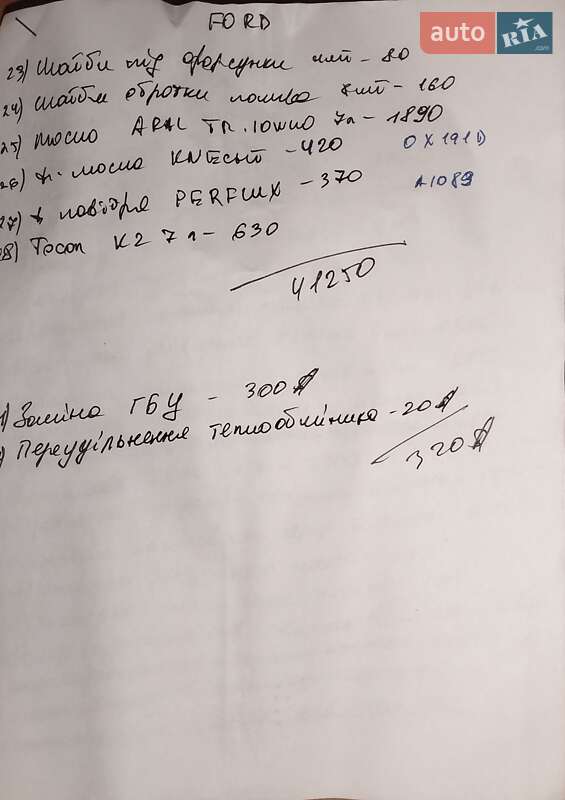 FORD
auto RIA.com
23) Шайби під форсунки 4шт - 80
24) Шайби обратки палива 8шт - 160
25) Масло ARAL TR. 10W40 7л - 1890
26) ф. масла KNECHT - 420 OX191D
27) ф повітря PERFLUX - 370 A1089
28) Тосол K2 7л - 630
41250
1) Заміна ГБУ - 300$
) Переущільнення теплообмінника - 20$
320$